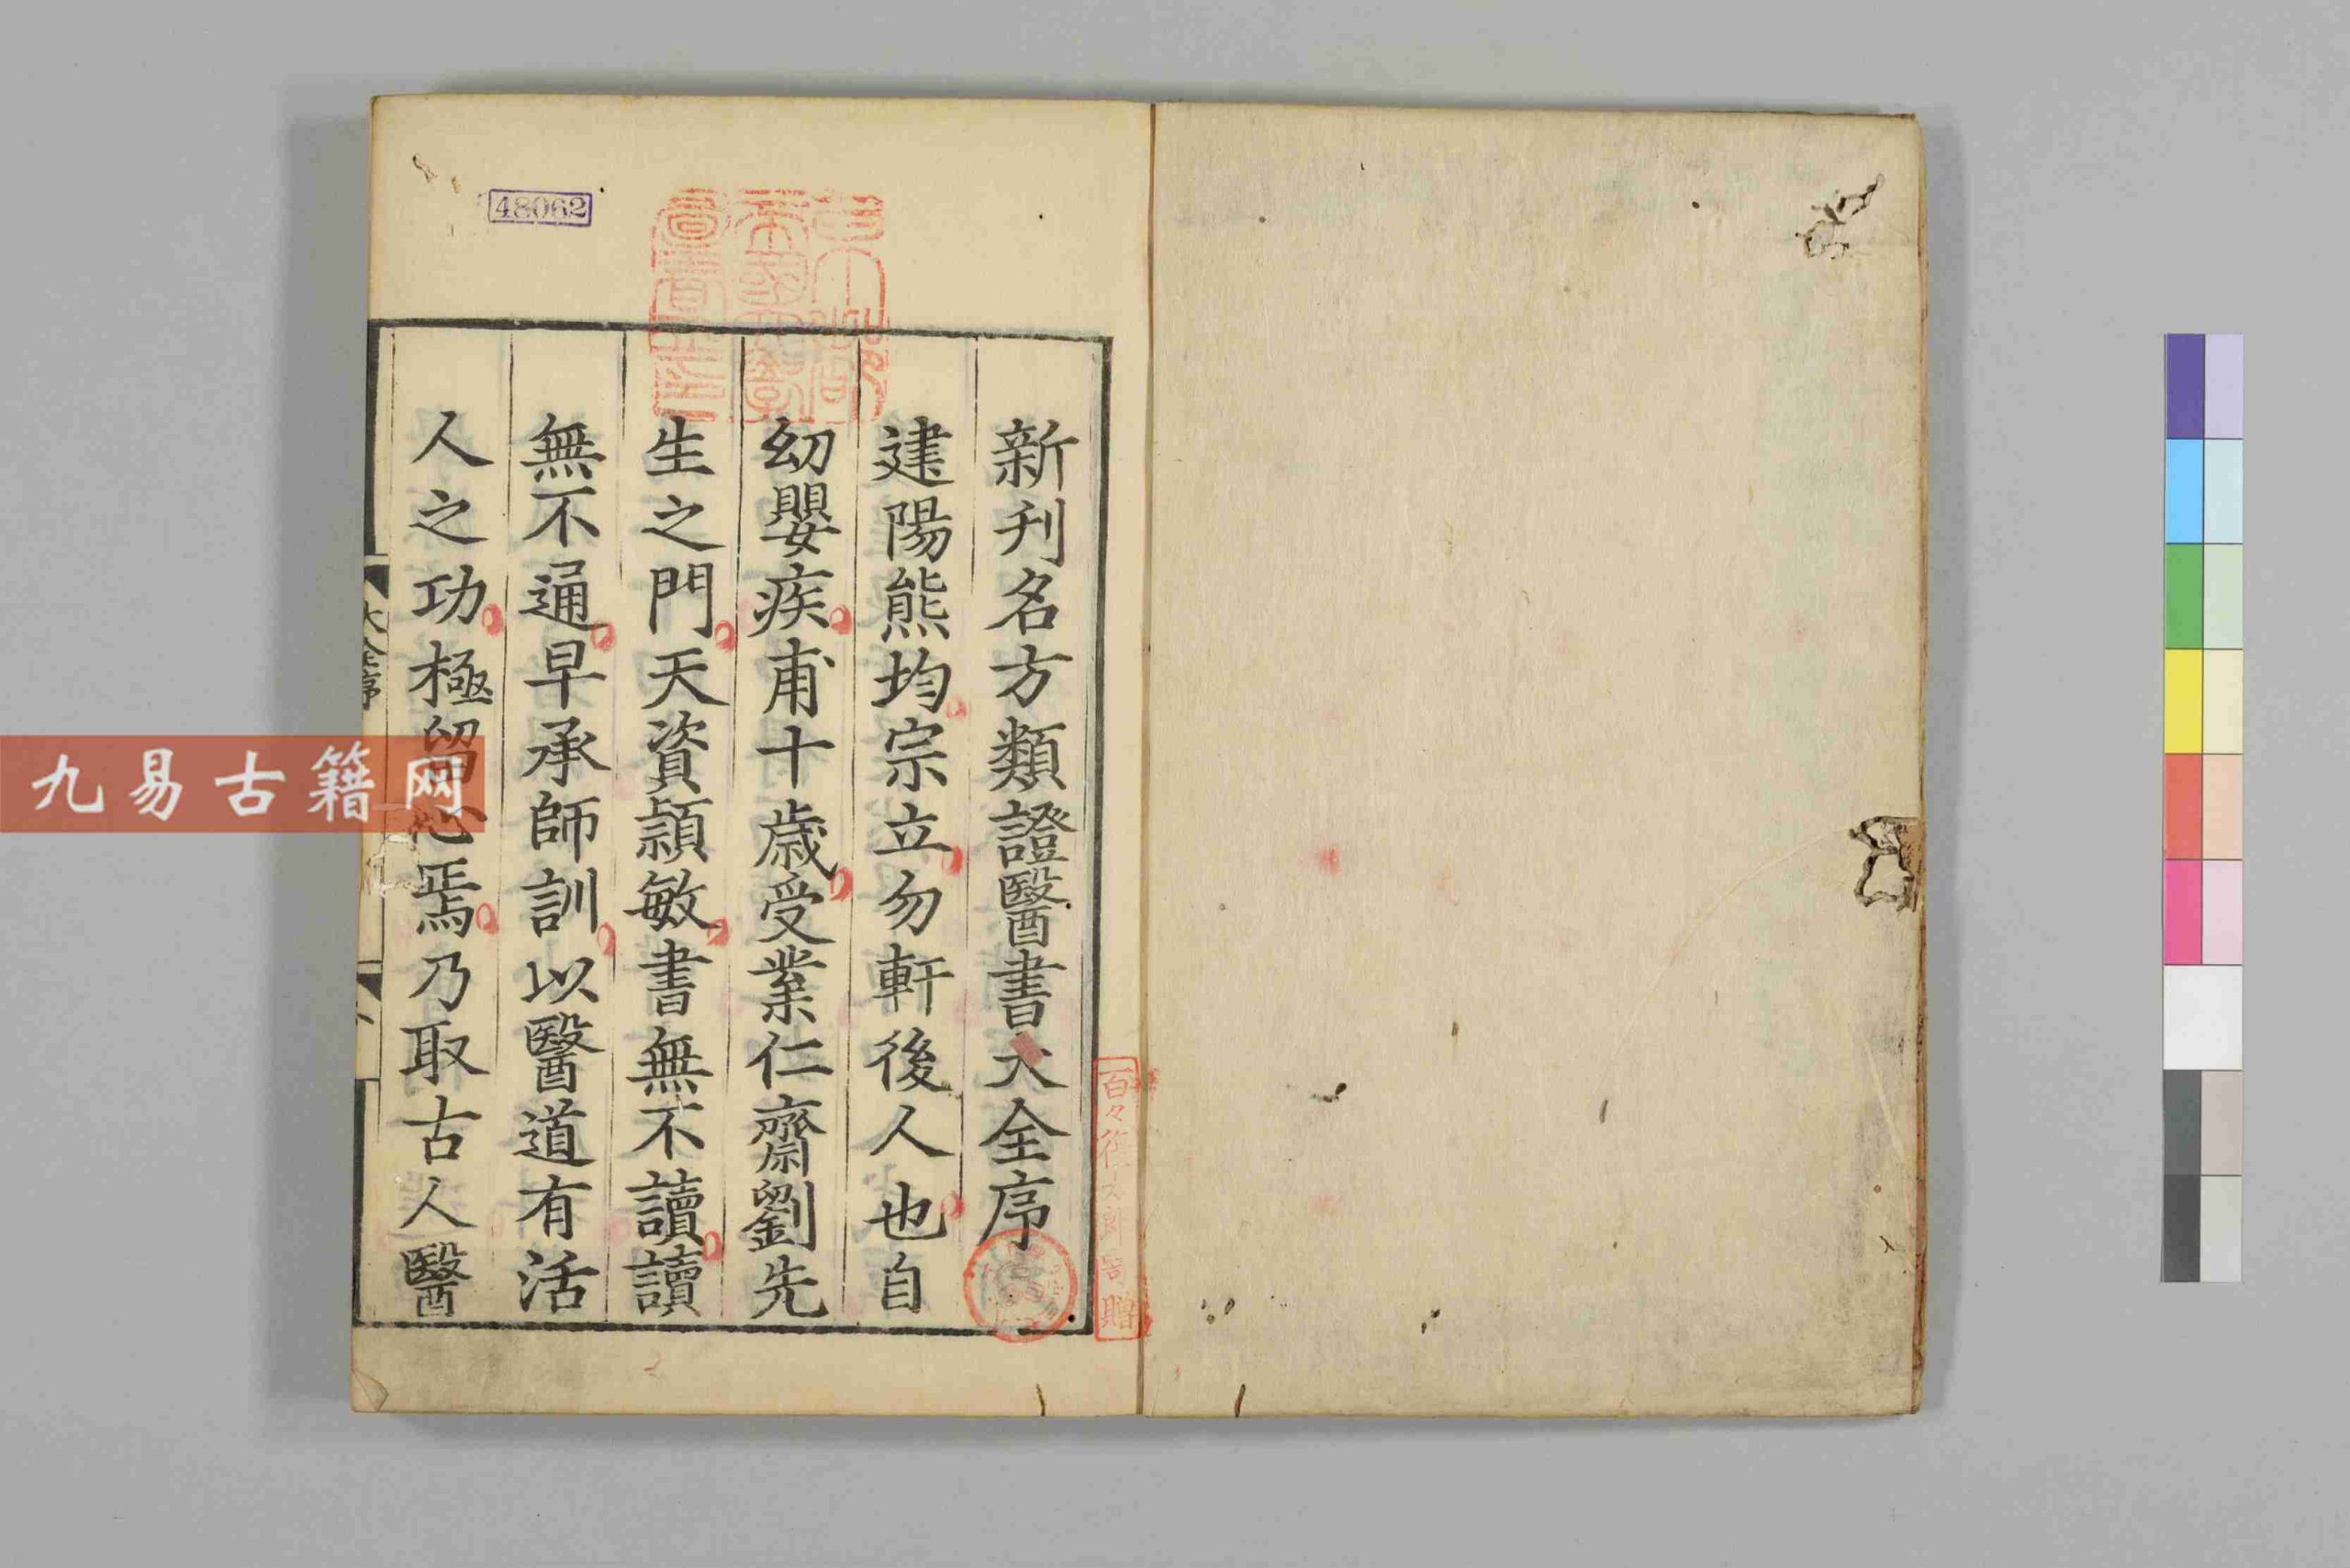 新刋名方類證醫書大全序
建陽熊均宗立勿軒後人也自
幼嬰疾甫十歲受業仁齋劉先
生之門天資頴敏書無不讀讀
無不通早承師訓以醫道有活
人之功極留心焉乃取古人醫
大全序
48062
九易古籍网